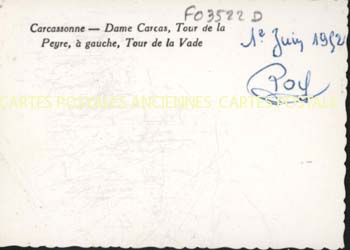 FO3522 D
Carcassonne — Dame Carcas, Tour de la
Peyre, à gauche, Tour de la Vade
1e Juin 1952
CARTES POSTALES ANCIENNES CARTES POSTALES